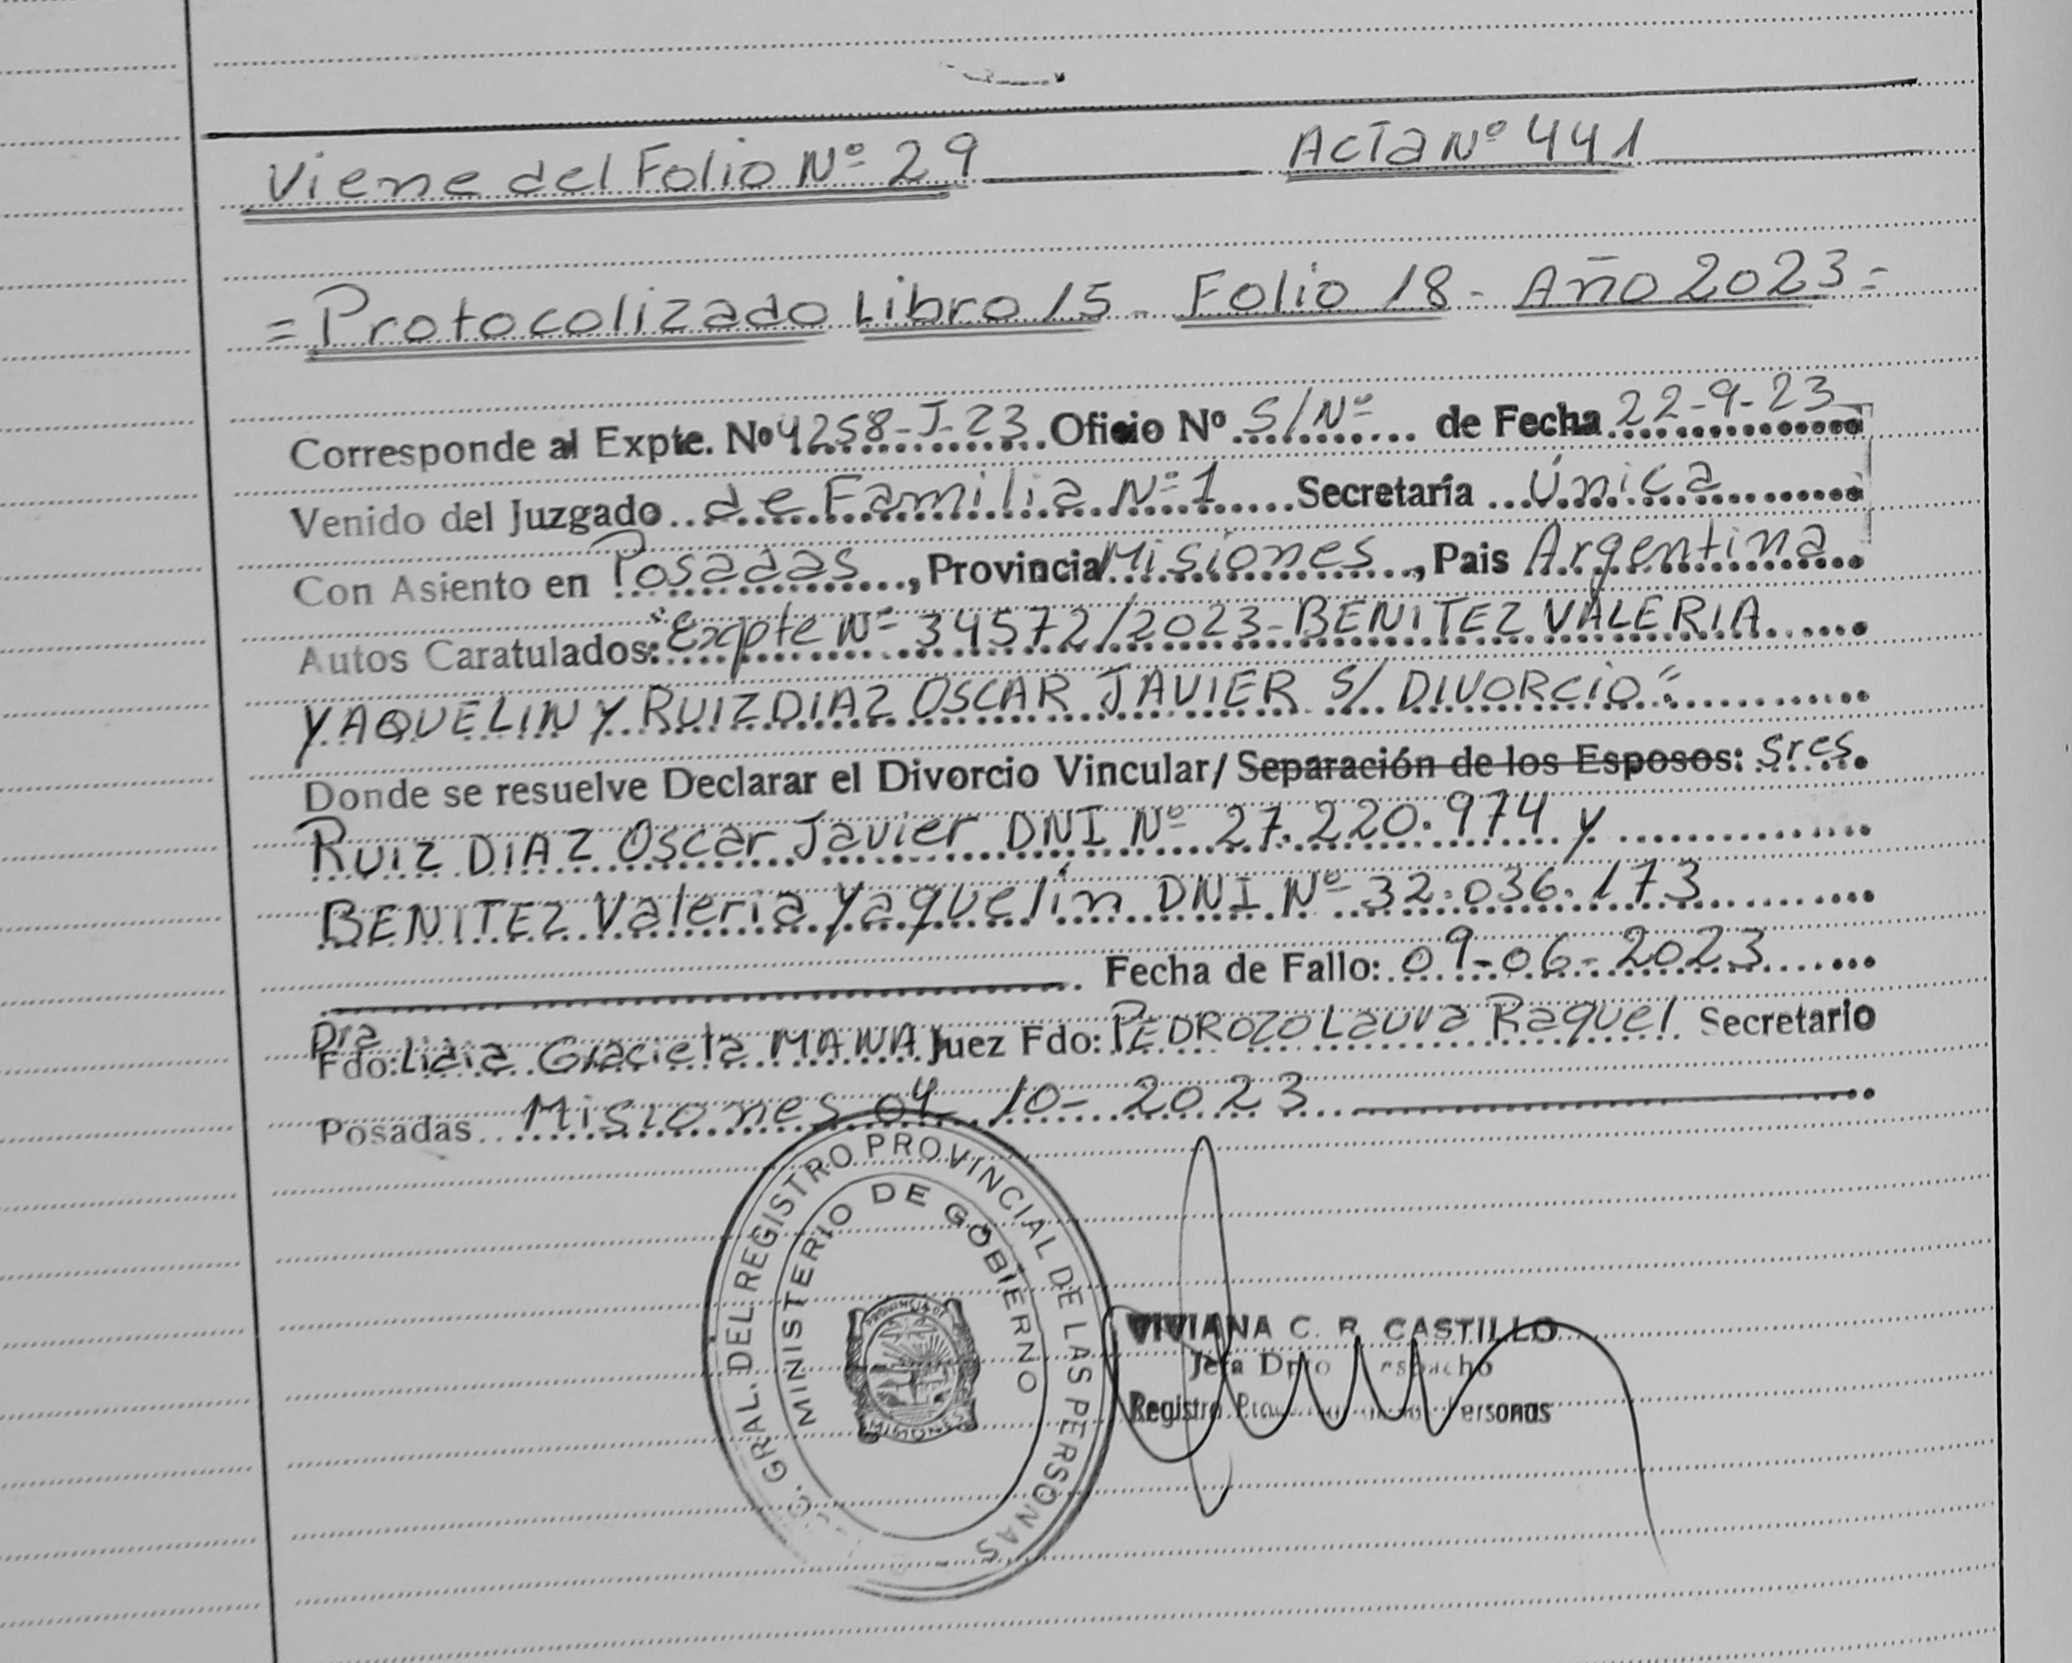 Viene del Folio Nº 29 Acta Nº 441
= Protocolizado Libro 15 - Folio 18 - Año 2023 =
Corresponde al Expte. Nº 4258-J-23 Oficio Nº S/Nº de Fecha 22-9-23
Venido del Juzgado de Familia Nº 1 Secretaría Única
Con Asiento en Posadas, Provincia Misiones, Pais Argentina
Autos Caratulados: "Expte Nº 34572/2023 - BENITEZ VALERIA
YAQUELIN Y RUIZ DIAZ OSCAR JAVIER S/ DIVORCIO".
Donde se resuelve Declarar el Divorcio Vincular/ Separación de los Esposos: Sres.
RUIZ DIAZ Oscar Javier DNI Nº 27.220.974 y
BENITEZ Valeria Yaquelín DNI Nº 32.036.173
Fecha de Fallo: 09-06-2023
Dra
Fdo: Lidia Graciela MANA Juez Fdo: PEDROZO Laura Raquel Secretario
Posadas Misiones 04-10-2023
GRAL. DEL REGISTRO PROVINCIAL DE LAS PERSONAS
MINISTERIO DE GOBIERNO
PROVINCIA DE
MISIONES
VIVIANA C. R. CASTILLO
Jefa Dpto
Registro Personas